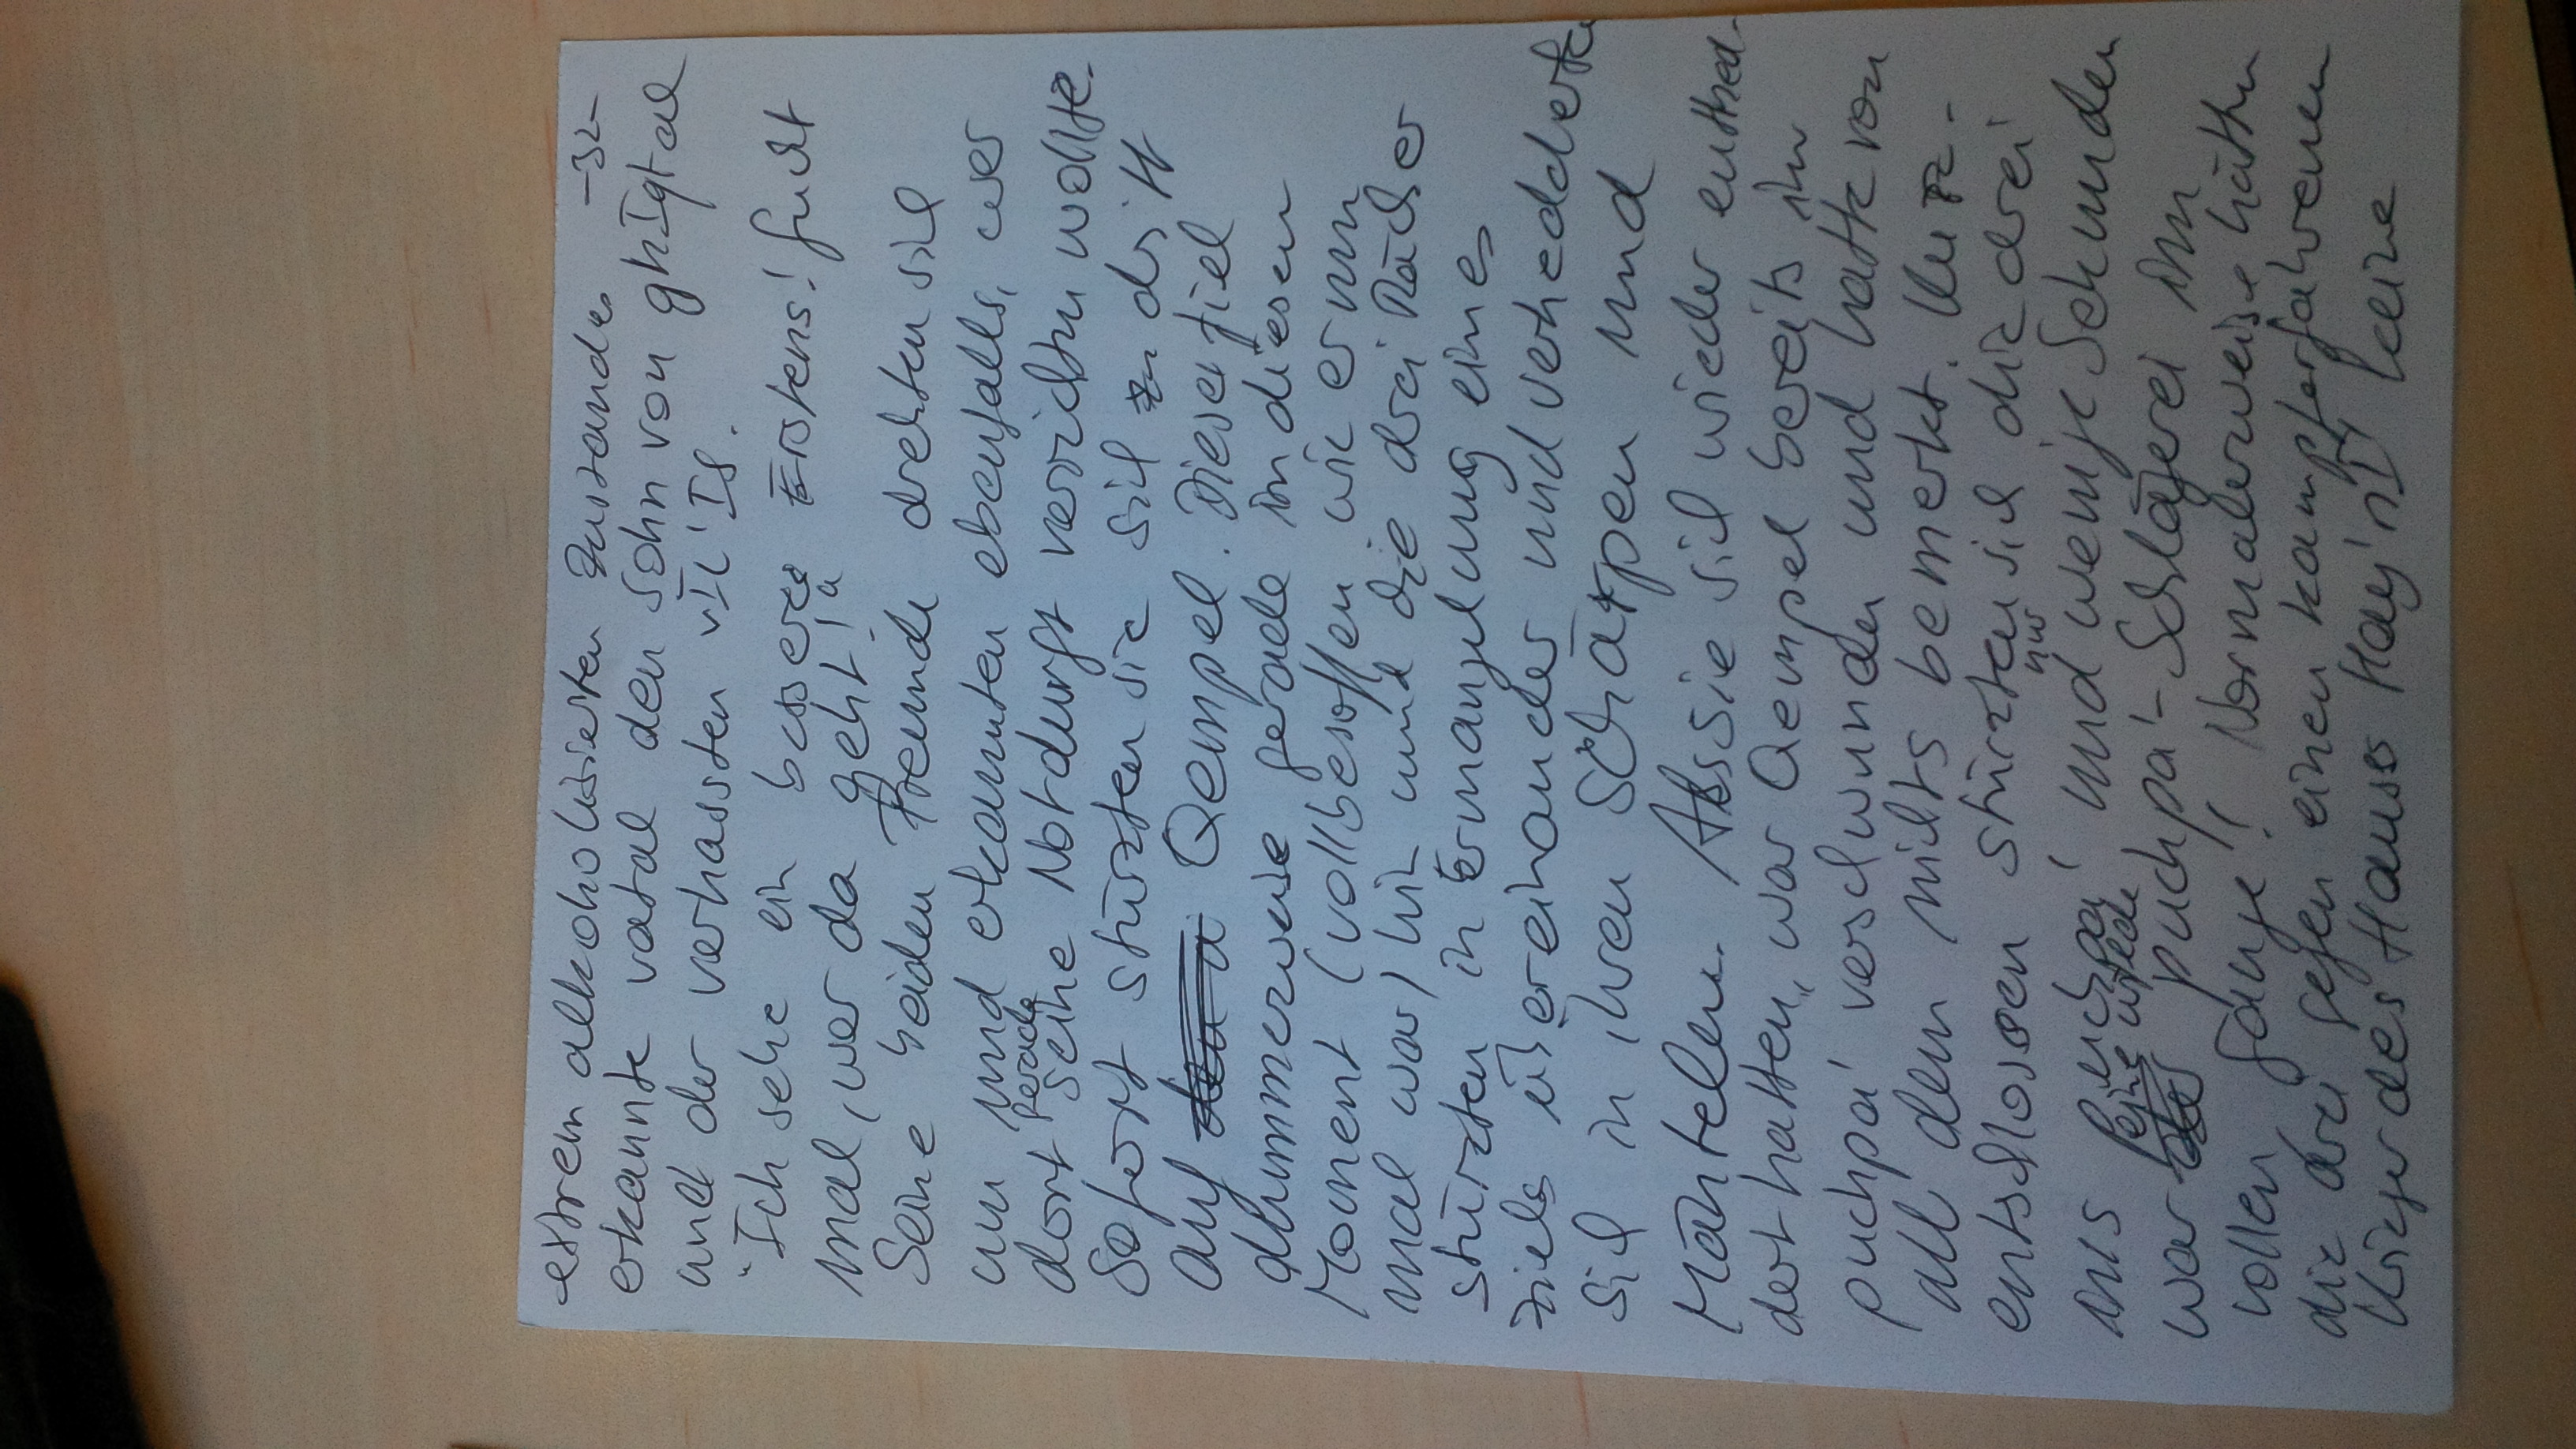 -32-
extrem alkoholisierten Zustandes
erkannte vatal den Sohn von ghIqtal
und der verhassten vIl'Is.
"Ich sehe ein bessere Erstens! Guckt
mal, wer da geht!" ja
Seine beiden Freunde drehten sich
um und erkannten ebenfalls, wer
dort gerade seine Notdurft verrichten wollte.
Sofort stürzten sie sich zu dritt
auf Qempel. Dieser fiel
dummerweise gerade in diesem
Moment (vollbesoffen wie er nun
mal war) hin und die drei Rächer
stürzten in Ermangelung eines
Ziels übereinander und verhedderten
sich in ihren Schärpen und
Mänteln. Als sie sich wieder enthed-
dert hatten, war Qempel bereits im
puchpa' verschwunden und hatte von
all dem nichts bemerkt. Kurz-
entschlossen stürzten sich die drei
ins puchpa' und wenige Sekunden
war eine puchpa'-Schlägerei im
vollen Gange! Normalerweise hätten
die drei gegen einen kampferfahrenen
Krieger des Hauses Hay'nIy keine